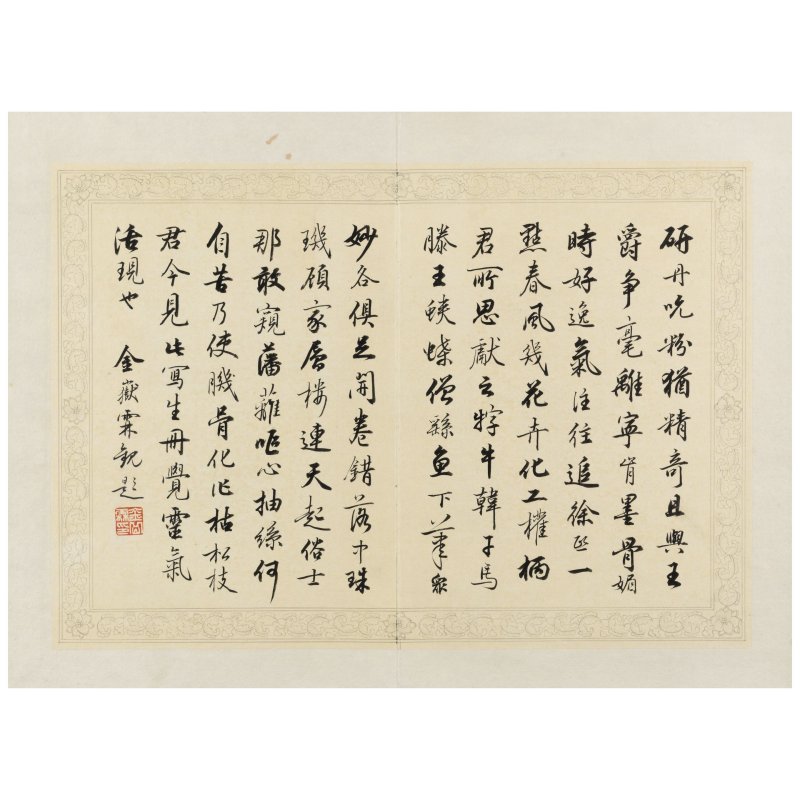 研丹吮粉猶精奇且與王
爵争毫離寧肯墨骨媚
時好逸氣往往追徐熙一
點春風幾花卉化工權柄
君所思獻之牸牛韓子馬
滕王蛺蝶僧繇魚下筆眾
妙各俱足開卷錯落中珠
璣顧家層樓連天起俗士
那敢窺藩蘺嘔心抽絲何
自苦乃使肌骨化作枯松枝
君今見此寫生冊覺靈氣
活現也 金嶽霖觀題